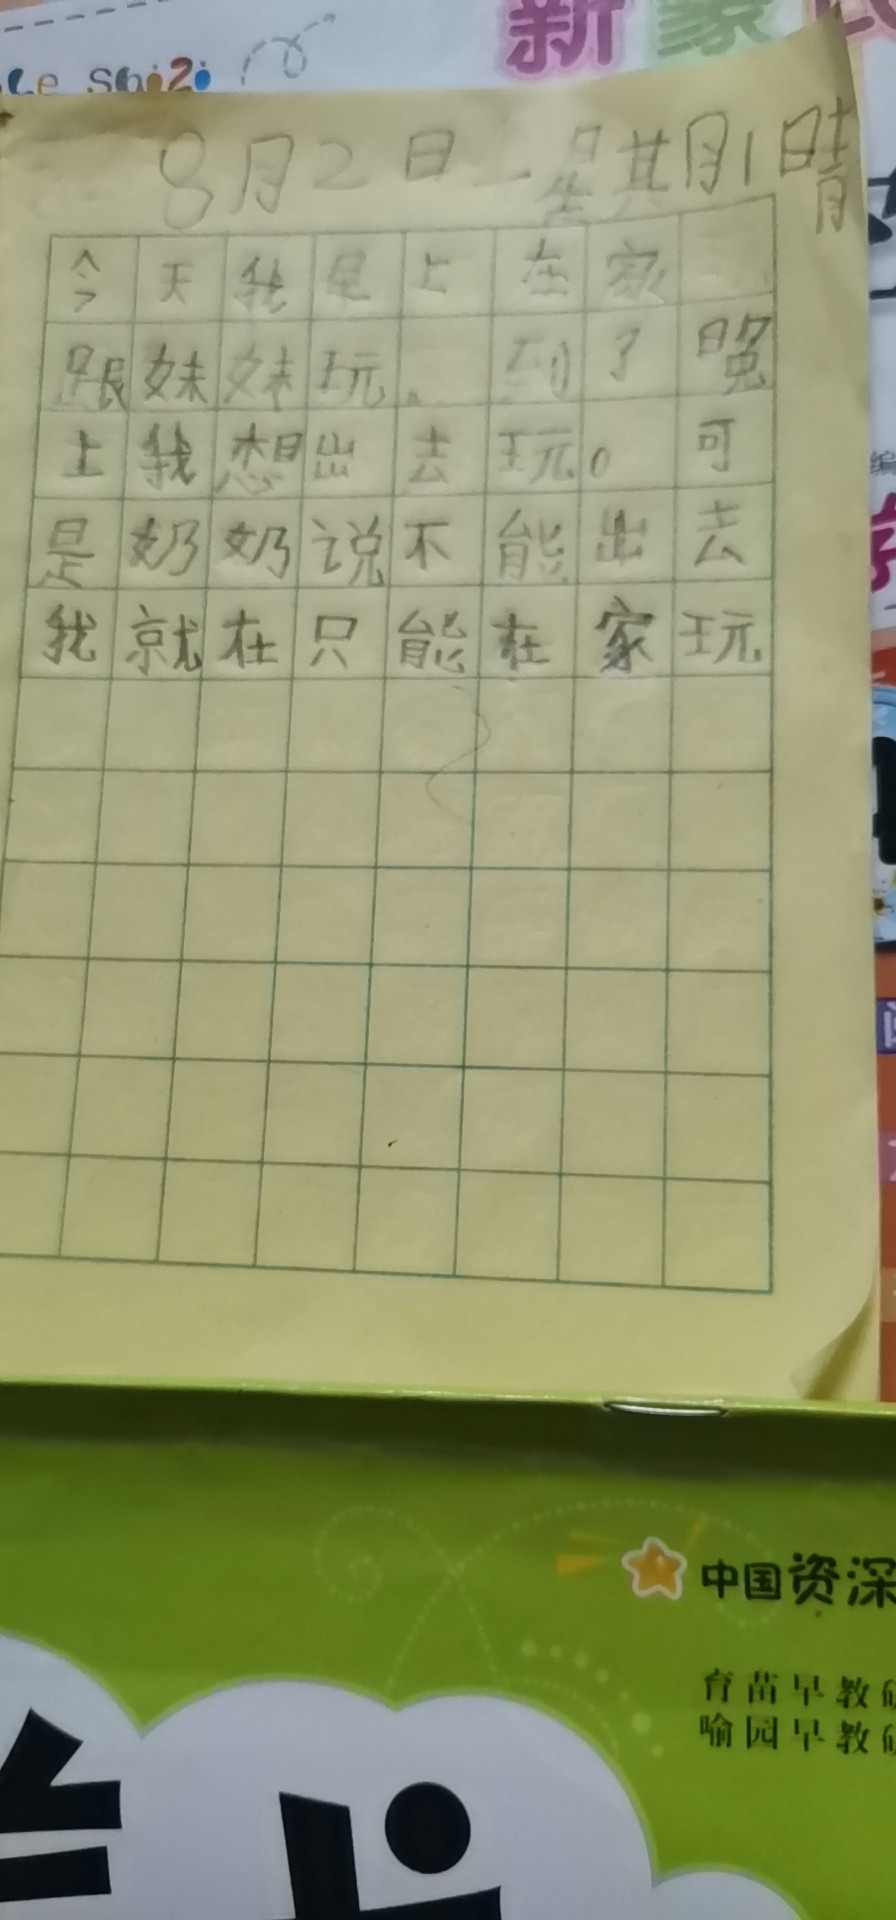 新蒙氏
8月2日星期1晴
今天我早上在家
跟妹妹玩。到了晚
上我想出去玩。可
是奶奶说不能出去
我就在只能在家玩
编
中国资深
育苗早教研
喻园早教研